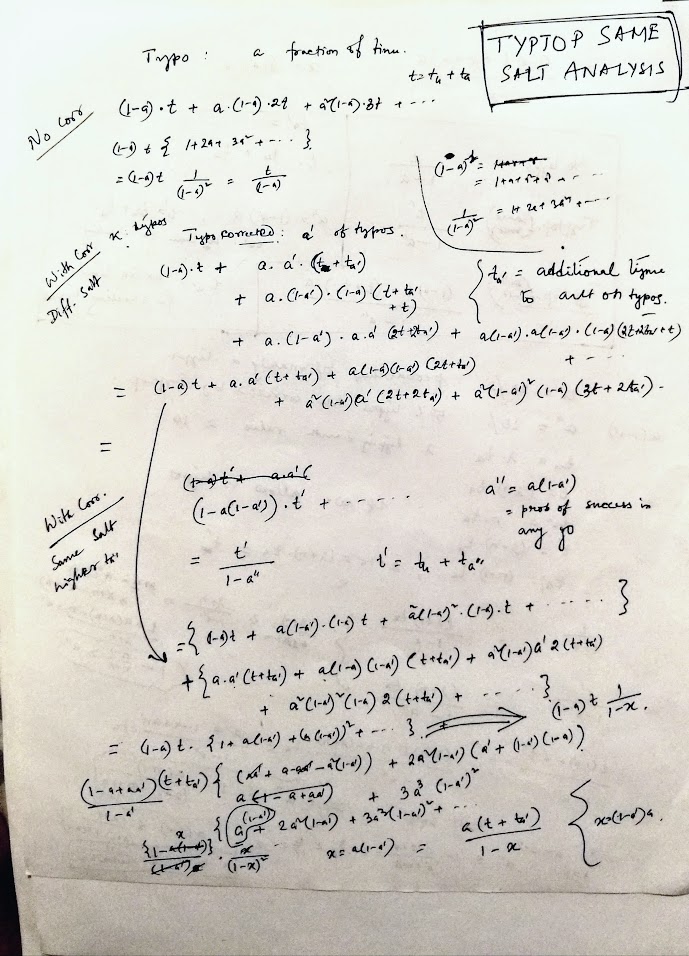 TYPTOP SAME
SALT ANALYSIS
Typo : a fraction of time.
t = tu + ta
No Corr
(1-a)·t + a·(1-a)·2t + a²(1-a)·3t + ....
(1-a) t { 1+2a+ 3a²+ .... }
= (1-a)t 1/(1-a)² = t/(1-a)
= 1+a+a²+a³+ ....
1/(1-a)² = 1+ 2a+3a²+....
With Corr
Diff. Salt
typos
Typo Corrected: a' of typos.
(1-a)·t + a. a' (t + ta')
+ a.(1-a')·(1-a) (t+ta' + t)
{ ta' = additional time
to on typos.
+ a.(1-a')·a.a' (2t+2ta') + a(1-a').a(1-a)·(1-a)(2t+2ta'+t)
+ ....
= (1-a)t + a.a'(t+ta') + a(1-a)(1-a') (2t+ta')
+ a²(1-a')a'(2t+2ta') + a²(1-a')²(1-a) (3t+2ta') -
=
With Corr.
Same Salt
higher ta'
(1-a(1-a'))·t' + ......
a'' = a(1-a')
= prob of success in
any go
= t'/(1-a'') t' = tu + ta''
= { (1-a)t + a(1-a')·(1-a)t + a²(1-a')²·(1-a)·t + ..... }
+ { a.a'(t+ta') + a(1-a)(1-a')(t+ta') + a²(1-a')a' 2(t+ta')
+ a²(1-a')²(1-a) 2(t+ta') + ..... }
= (1-a)t. {1+ a(1-a') +(a(1-a'))²+ ... } ⟹ (1-a)t 1/(1-x).
(1-a+aa')/(1-a') (t+ta') { + 2a²(1-a') (a'+(1-a')(1-a)) }
+ 3a³(1-a')²
{ a(1-a') + 2a²(1-a')² + 3a³(1-a')³+ ...
x/(1-x)² x = a(1-a') = a(t+ta')/(1-x) { x=(1-a')a.